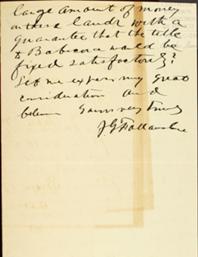 large amount of money
on these lands with a
guarantee that the title
to Babcock would be
fixed satisfactorily?
Let me express my great
consideration and
believe Yours very truly
J G Follansbee